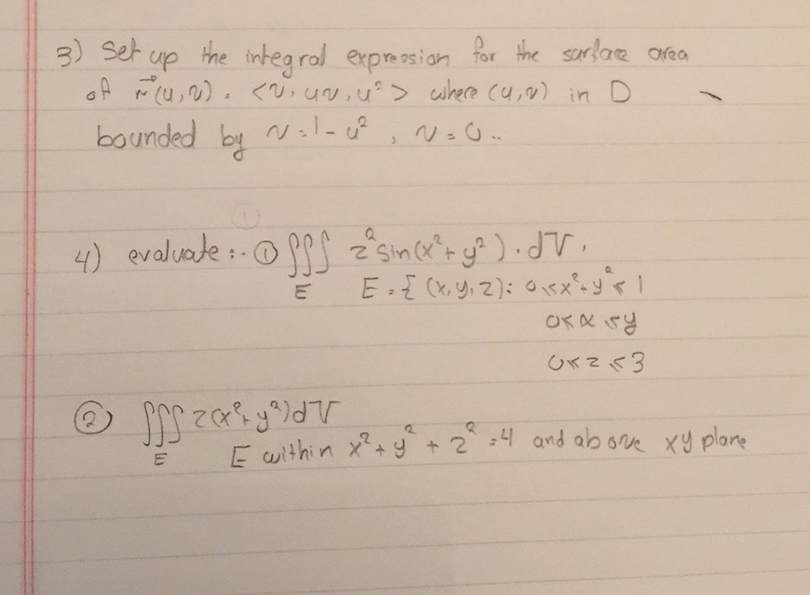 3) Set up the integral expression for the surface area
of r⃗(u,v) = <v, uv, u²> where (u,v) in D
bounded by v = 1 - u², v = 0..
4) evaluate :- ① ∭ z² sin(x² + y²) · dV,
E E = { (x, y, z): 0 ≤ x² + y² ≤ 1
0 ≤ x ≤ y
0 ≤ z ≤ 3
② ∭ z(x² + y²) dV
E E within x² + y² + z² = 4 and above xy plane